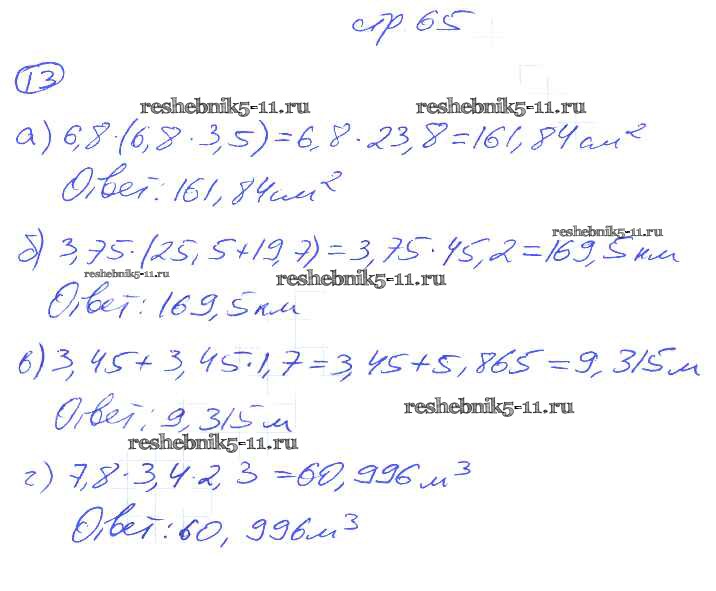 стр 65
13
reshebnik5-11.ru reshebnik5-11.ru
а) 6,8·(6,8·3,5)=6,8·23,8=161,84 см²
Ответ: 161,84 см²
reshebnik5-11.ru
б) 3,75·(25,5+19,7)=3,75·45,2=169,5 км
reshebnik5-11.ru reshebnik5-11.ru
Ответ: 169,5 км
в) 3,45+3,45·1,7=3,45+5,865=9,315 м
reshebnik5-11.ru
Ответ: 9,315 м
reshebnik5-11.ru
г) 7,8·3,4·2,3=60,996 м³
Ответ: 60,996 м³